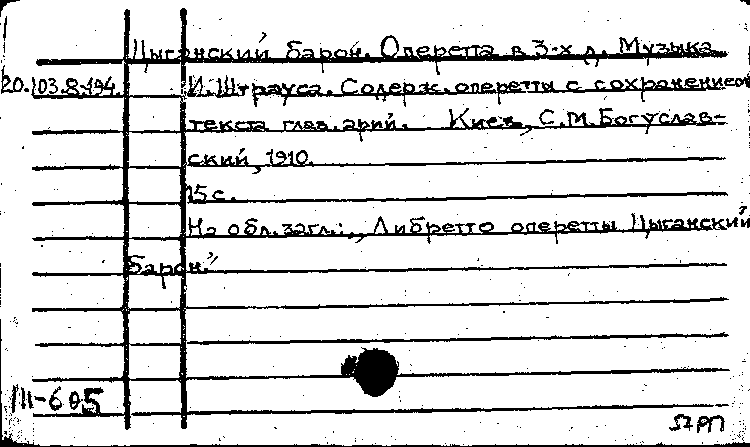 Цыганский барон. Оперетта в 3-х д. Музыка
20.103.8.194. И. Штрауса. Содерж. оперетты с сохранением
текста глав. арий. Киев, С.М. Богуслав-
ский, 1910.
15 с.
На обл. загл.: „Либретто оперетты Цыганский
барон."
III-605
57РП